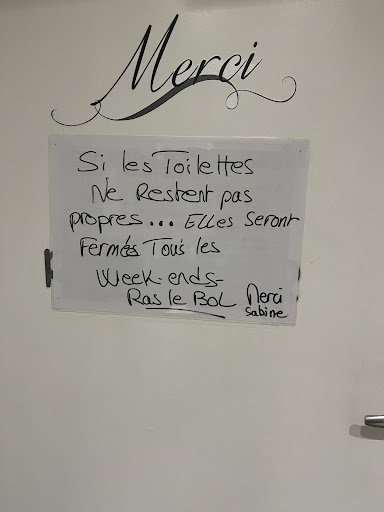 Merci
Si les Toilettes
Ne Restent pas
propres... Elles Seront
Fermés Tous les
Week-ends-
Ras le Bol Merci
Sabine